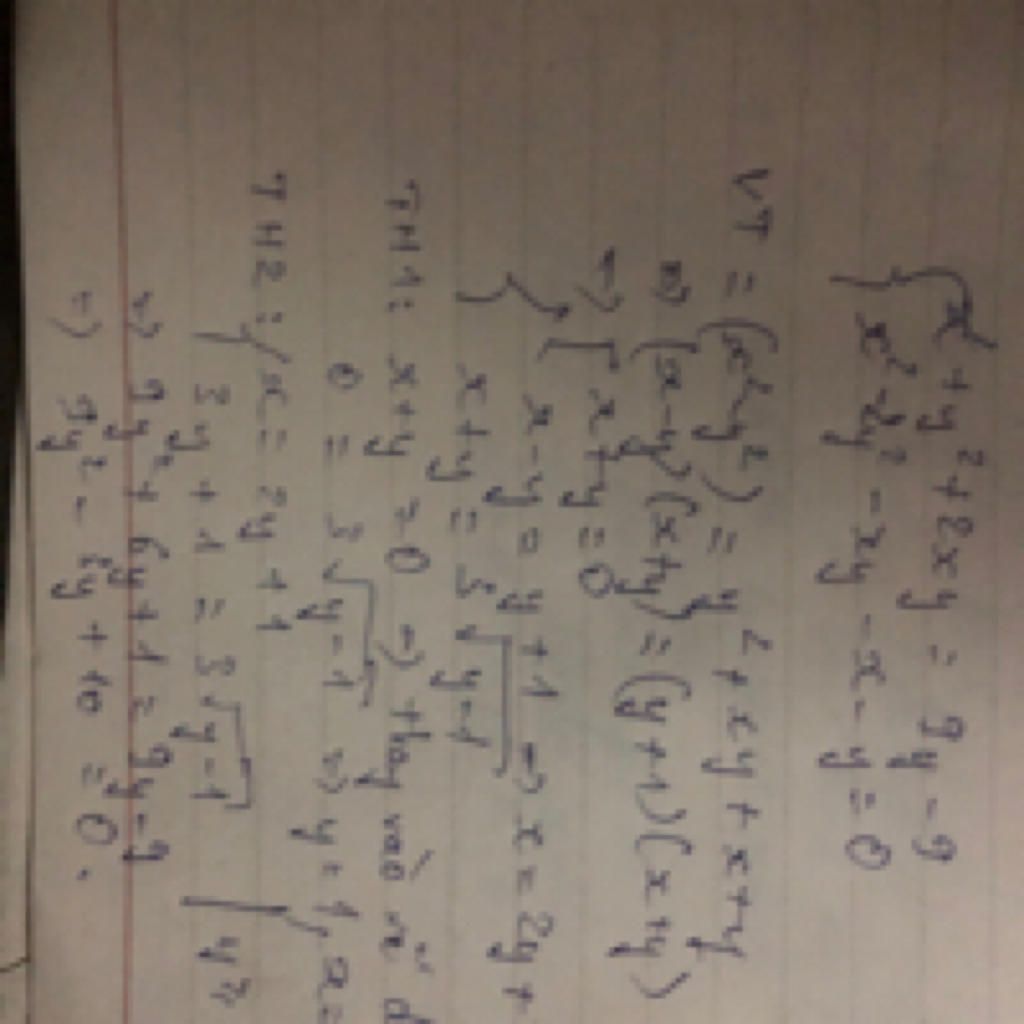 x² + y² + 2xy = 9y - 9
x² - 2y² - xy - x - y = 0
VT = (x² - y²) = y² + xy + x + y
⇔ (x - y)(x + y) = (y + 1)(x + y)
⇔ x + y = 0
x - y = y + 1 ⇒ x = 2y +
x + y = 3√y - 1
TH1: x + y = 0 ⇒ thay vào
0 = 3√y - 1 ⇔ y = 1, x =
TH2: x = 2y + 1
3y + 1 = 3√y - 1
⇔ 9y² + 6y + 1 = 9y - 9
⇔ 9y² - 3y + 10 = 0.